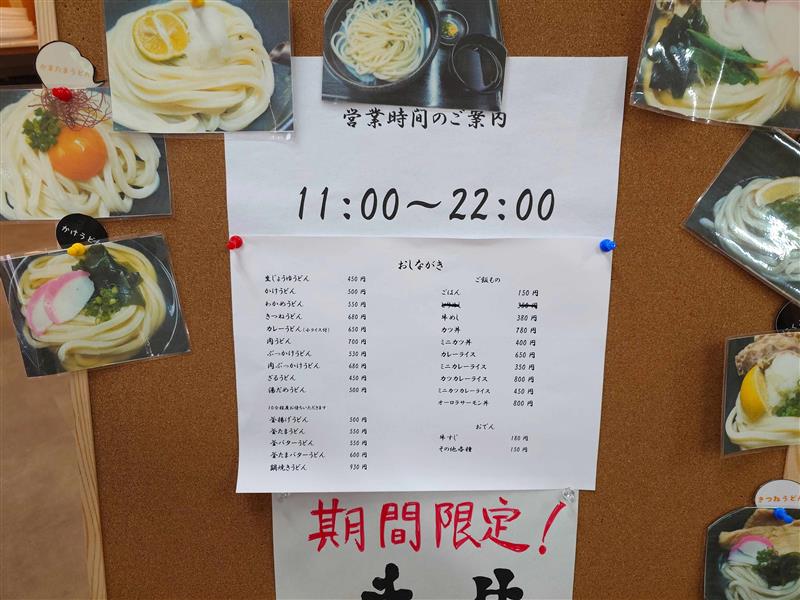 かまたまうどん
かけうどん
営業時間のご案内
11:00〜22:00
おしながき
生じょうゆうどん 450円
かけうどん 500円
わかめうどん 550円
きつねうどん 680円
カレーうどん(小ライス付) 650円
肉うどん 700円
ぶっかけうどん 530円
肉ぶっかけうどん 680円
ざるうどん 450円
湯だめうどん 500円
10分程度お待ちいただきます
釜揚げうどん 500円
釜たまうどん 550円
釜バターうどん 550円
釜たまバターうどん 600円
鍋焼きうどん 930円
ご飯もの
ごはん 150円
牛めし 380円
カツ丼 780円
ミニカツ丼 400円
カレーライス 650円
ミニカレーライス 350円
カツカレーライス 800円
ミニカツカレーライス 450円
オーロラサーモン丼 800円
おでん
牛すじ 180円
その他各種 150円
きつねうどん
期間限定!